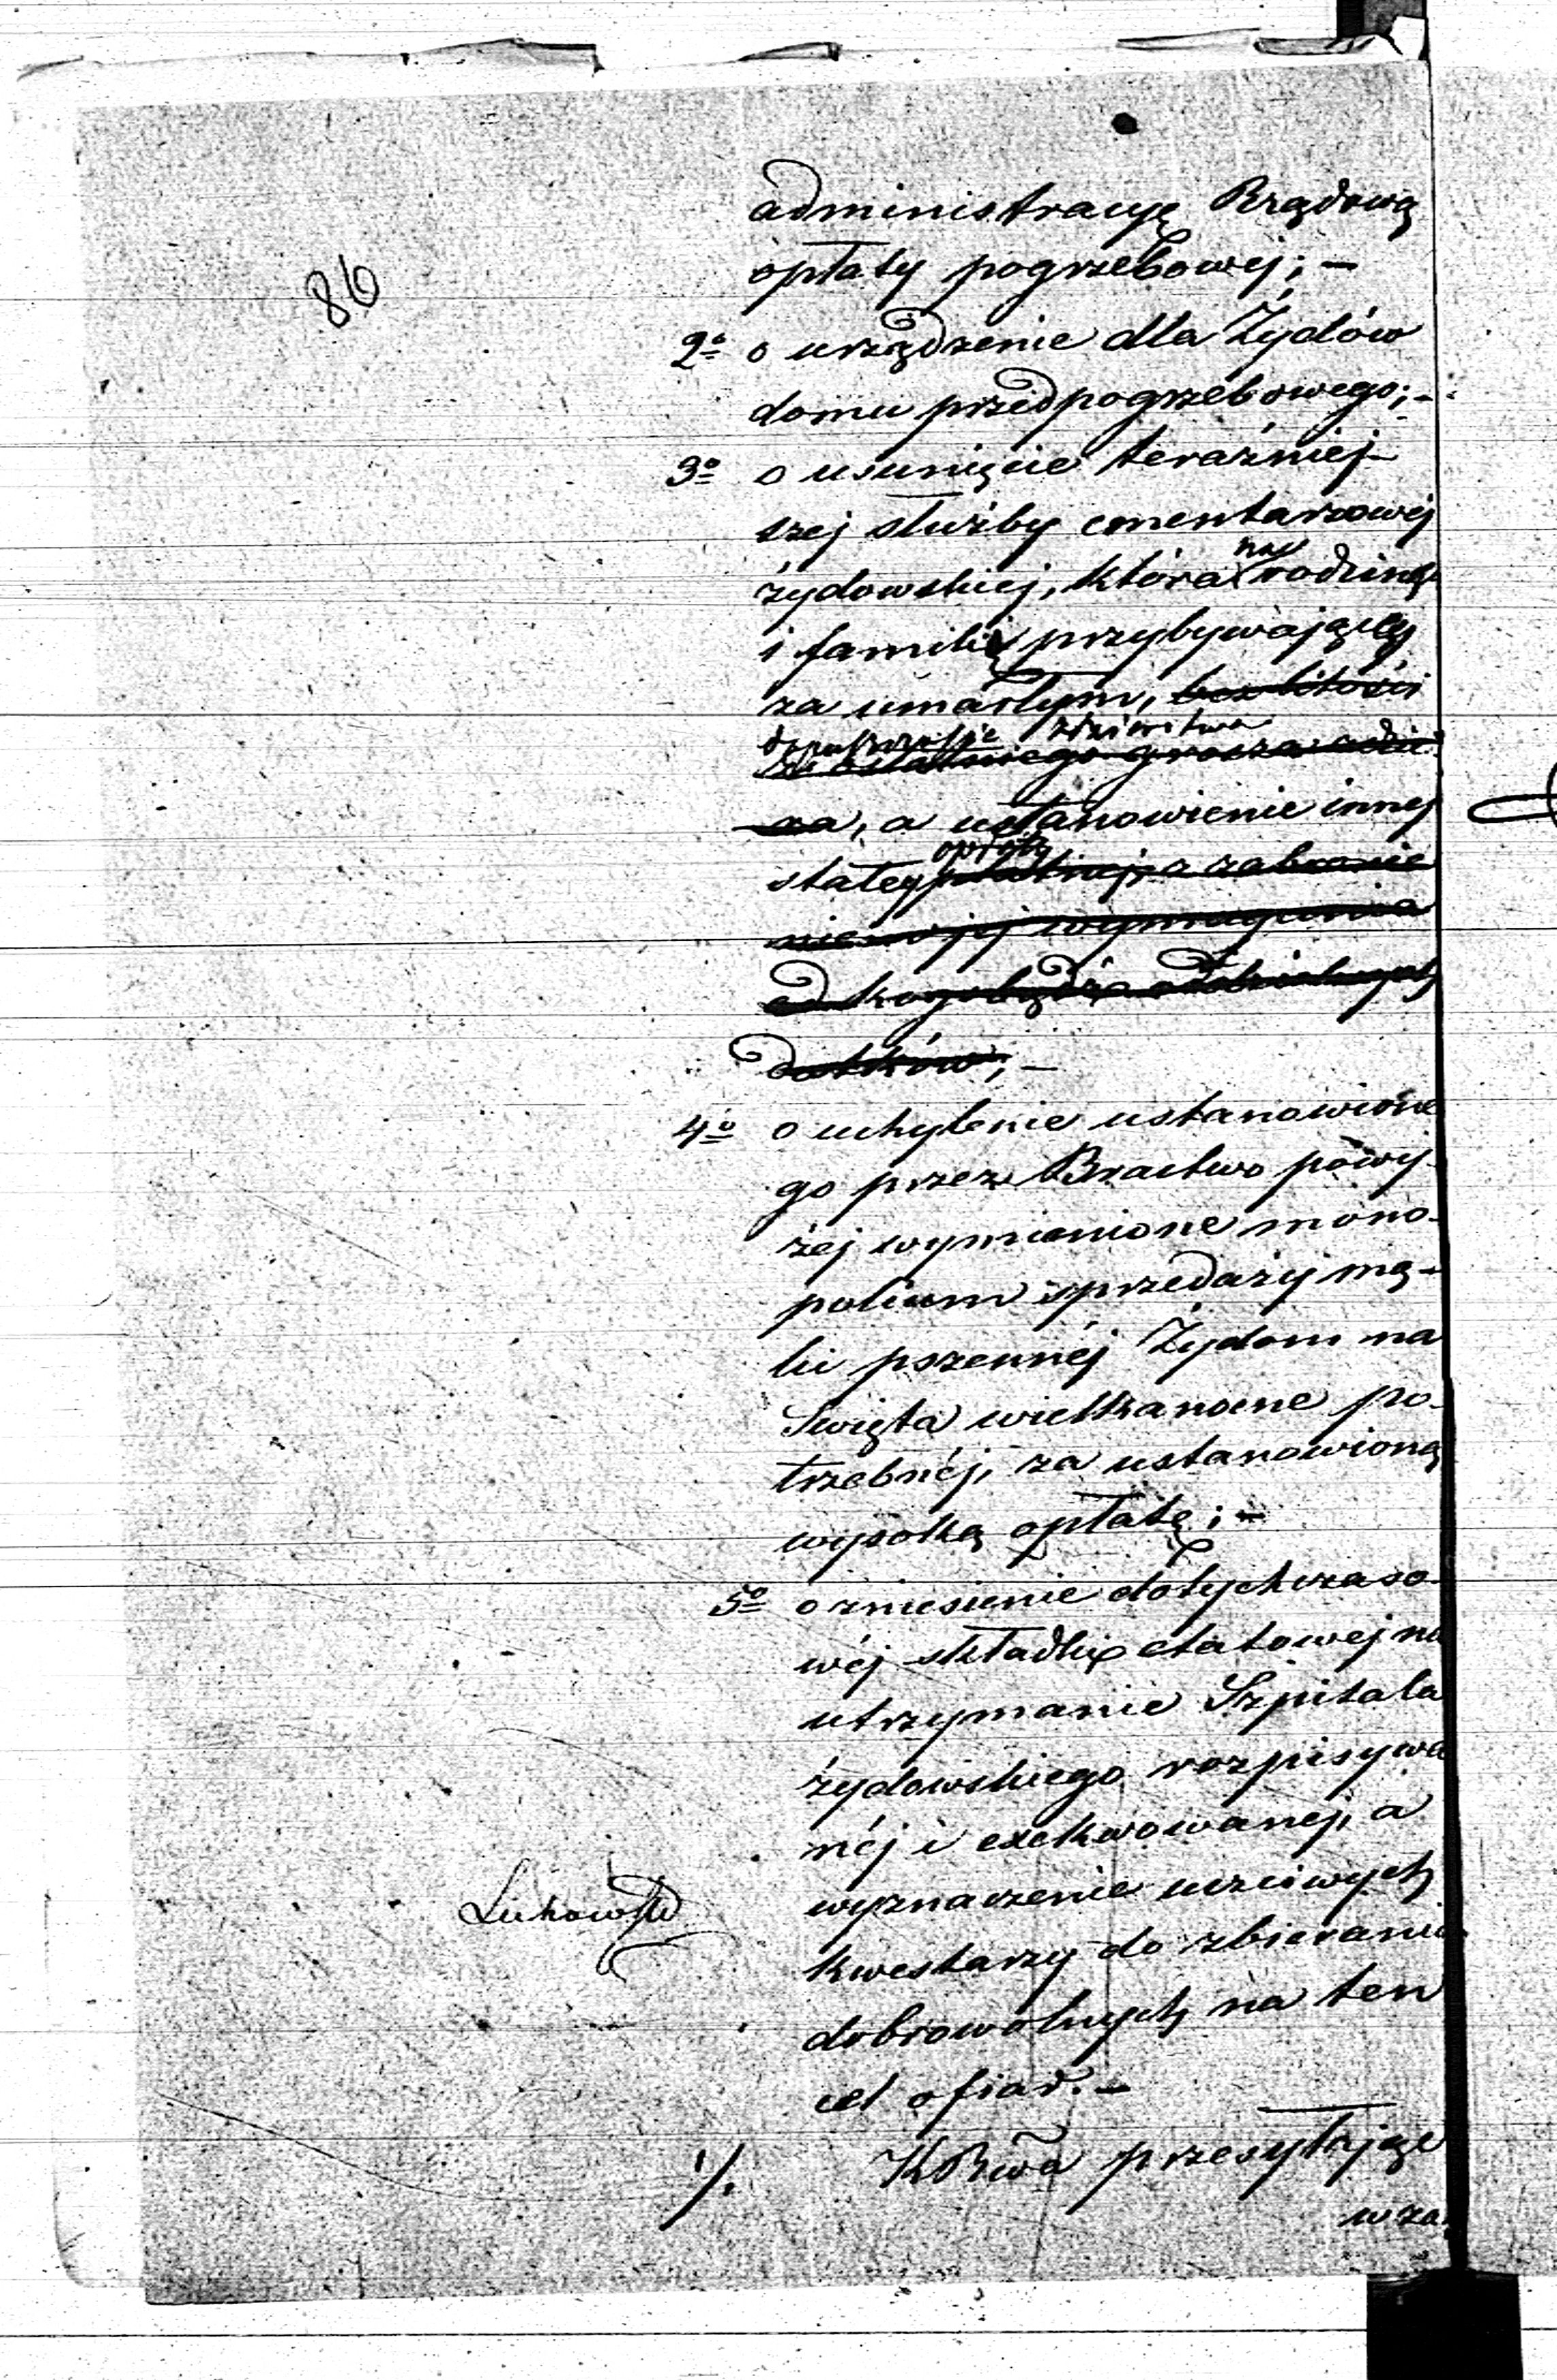 86
administracyę Rządową
opłaty pogrzebowej; —
2º o urządzenie dla Żydów
domu przedpogrzebowego; —
3º o usunięcie teraźniej-
szej służby cmentarzowej
żydowskiej, która na rodzinę
i familię przybywającą
za umarłym, bez litości
dopuszcza się zdzierstwa
ze ostatniego grosza odzie-
ra, a ustanowienie innej
stałej opłaty płatnej, a zabranie
nie jej wymagania
od kogobądź
datków; —
4º o uchylenie ustanowione
go przez Bractwo powy-
żej wymienione mono-
polium sprzedaży mą-
ki pszennéj Żydom na
Święta wielkanocne po-
trzebnéj, za ustanowioną
wysoką opłatę; —
5º o zniesienie dotychczaso-
wéj składki etatowej na
utrzymanie Szpitala
żydowskiego rozpisywa
néj i exekwowanej, a
wyznaczenie uczciwych
kwestarzy do zbierania
dobrowolnych na ten
cel ofiar. —
KRwa przesyłając
w za